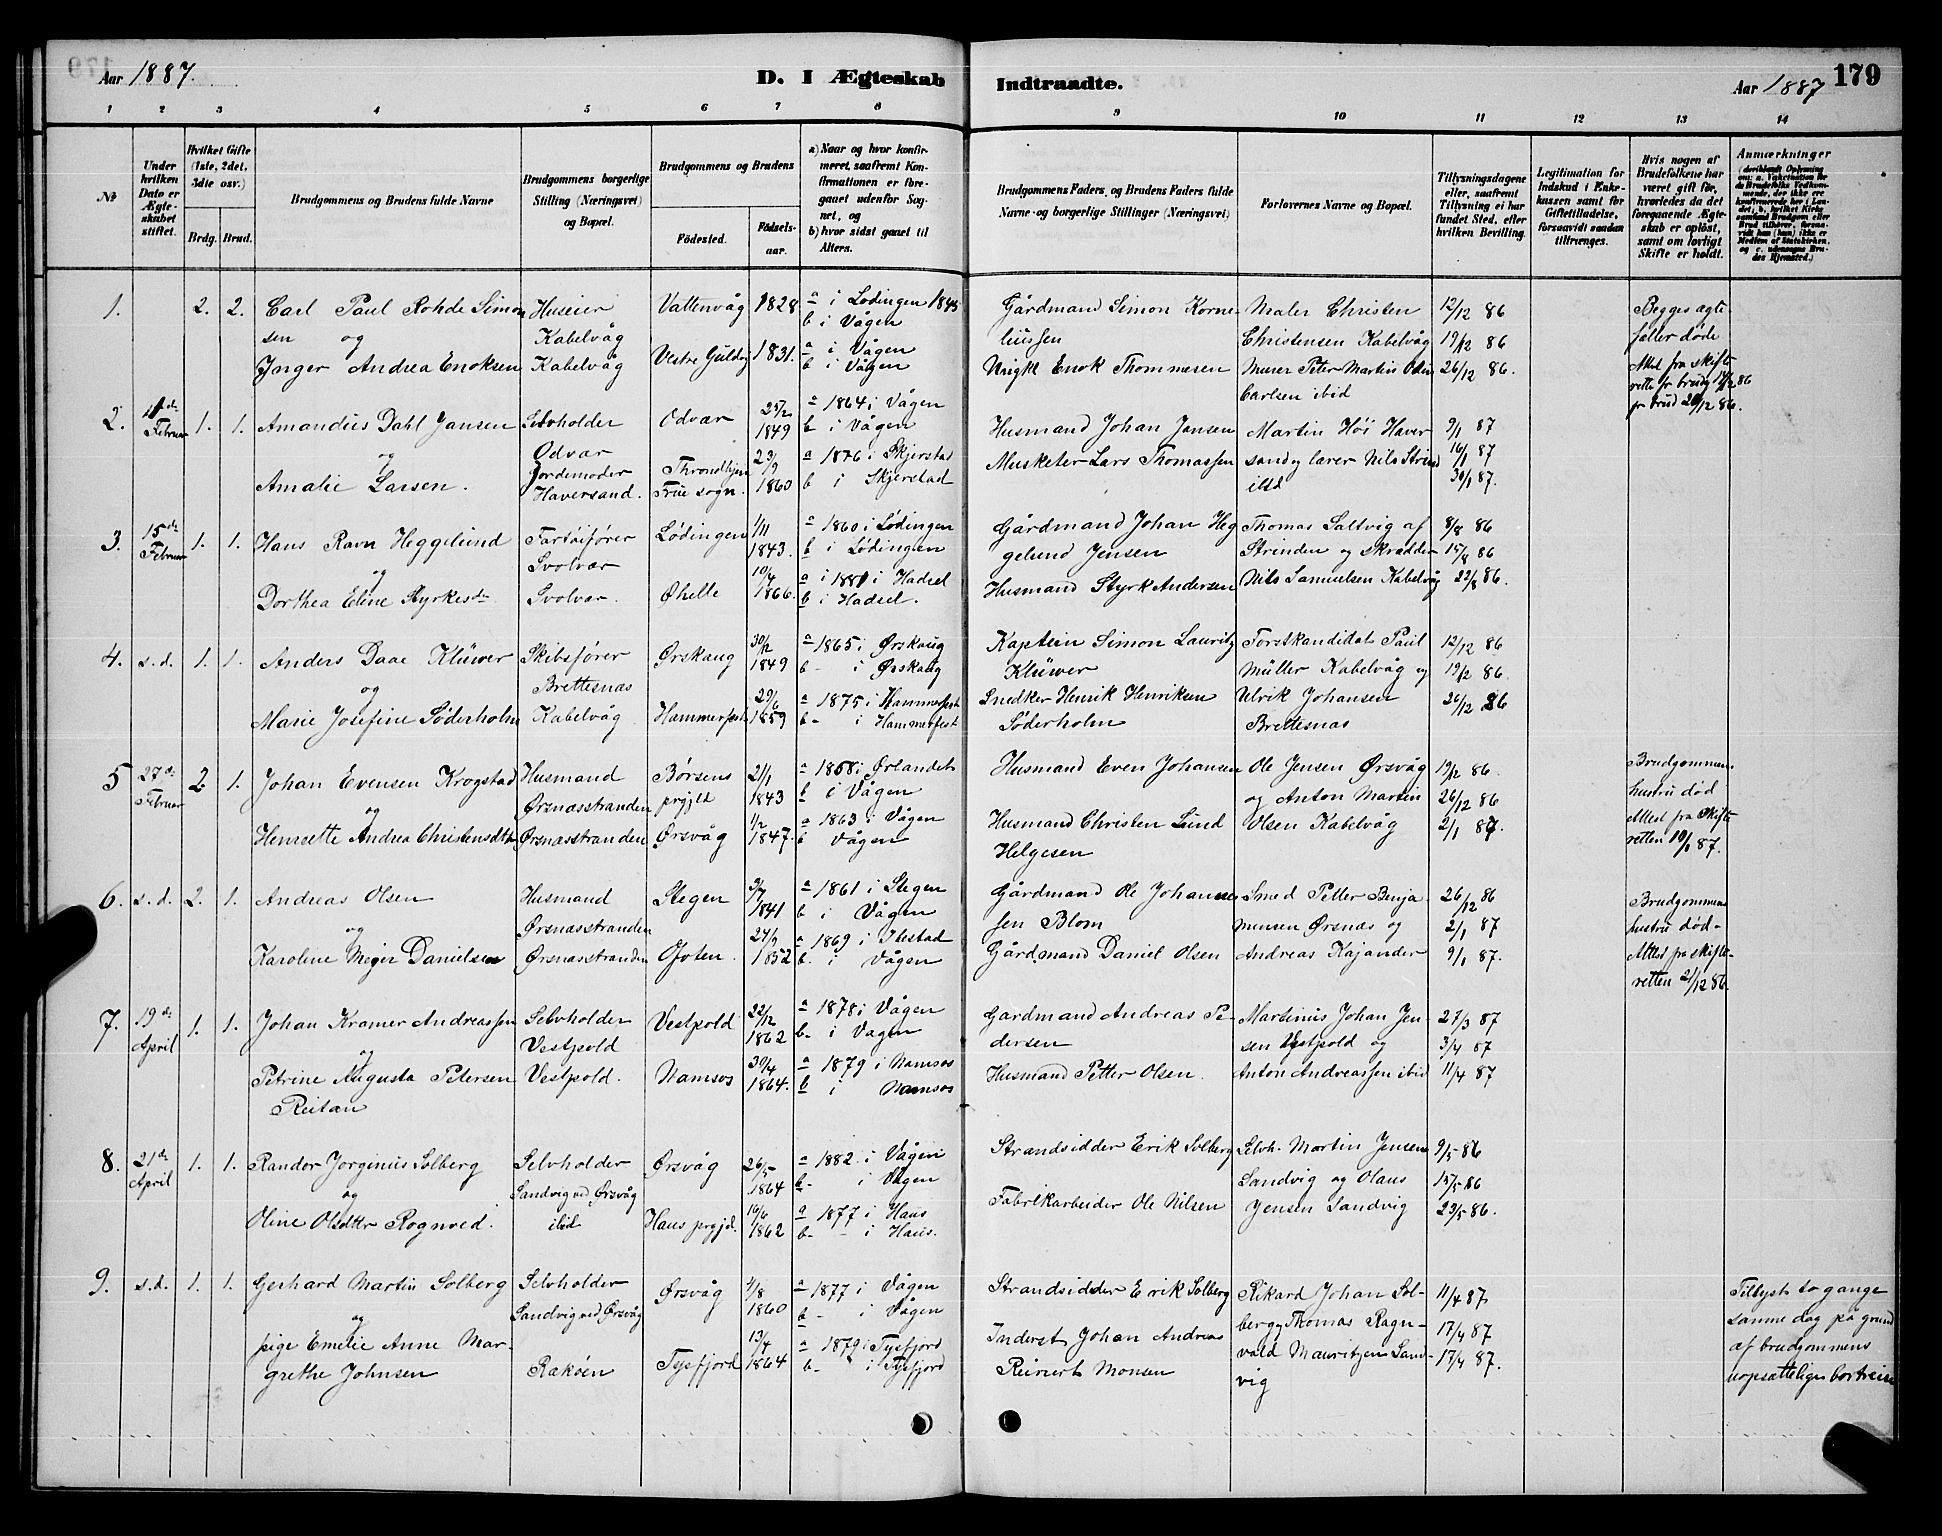 Aar 1887.
D. I Ægteskab
Indtraadte.
Aar 1887
179
1 2 3 4 5 6 7 8 9 10 11 12 13 14
No
Under hvilken Dato er Ægteskabet stiftet.
Hvilket Gifte (1ste, 2det, 3die osv.)
Brdg. Brud.
Brudgommens og Brudens fulde Navne
Brudgommens borgerlige Stilling (Næringsvei) og Bopæl.
Brudgommens og Brudens
Fødested. Fødselsaar.
a) Naar og hvor konfirmeret, saafremt Konfirmationen er foregaaet udenfor Sognet, og
b) hvor sidst gaaet til Alters.
Brudgommens Faders, og Brudens Faders fulde Navne og borgerlige Stillinger (Næringsvei)
Forlovernes Navne og Bopæl.
Tillysningsdagene eller, saafremt Tillysning ei har fundet Sted, efter hvilken Bevilling.
Legitimation for Indskud i Enkekassen samt for Giftetilladelse, forsaavidt saadan tiltrænges.
Hvis nogen af Brudefolkene har været gift før, hvorledes da det foregaaende Ægteskab er opløst, samt om lovligt Skifte er holdt.
Anmærkninger
1. 2. 2. Carl Paul Rohde Simon Huseier Vattenvåg 1828 a i Lødingen 1843 Gårdmand Simon Korne- Maler Christen 12/12 86 Begges ægte
sen og Kabelvåg b i Vågen liussen Christensen Kabelvåg 19/12 86 fæller døde
Inger Andrea Enoksen Kabelvåg Vestre Guldvig 1831. a i Vågen Enok Thommesen Murer Peter Martin Odin 26/12 86. Attest fra skifte
b i Vågen Carlsen ibid retten
2. Februar 1. 1. Amandus Dahl Jansen Selvholder Odvær 25/2 1849 a 1864 i Vågen Husmand Johan Jansen Martin Høi Haver 9/1 87
og Odvær b i Vågen
Amalie Larsen. Jordemoder Throndhjem 23/9 1860 a 1876 i Skjerstad Musketer Lars Thomassen sand og lærer Nils Strind 16/1 87
Haversand. Frue sogn. b i Skjerstad ibid 30/1 87.
3. 15de Februar 1. 1. Hans Ravn Heggelund Fartøifører Lødingen 1/11 1843. a 1860 i Lødingen Gårdmand Johan Heg Thomas Saltvig af 8/8 86
og Svolvær b i Lødingen gelund Jensen Strinden og skrædder 15/8 86
Dorthea Eline Styrkesdr Svolvær. Øhelle 10/4 1866. a i 1881 i Hadsel Husmand Styrk Andersen Nils Samuelsen Kabelvåg 22/8 86.
b i Hadsel.
4. s.d. 1. 1. Anders Daae Klüwer Skibsfører Ørskaug 30/12 1849 a 1865 i Ørskaug Kaptein Simon Lauritz Forstkandidat Paul 12/12 86
og Brettesnæs b - i Ørskaug Klüwer Müller Kabelvåg og 19/12 86
Marie Josefine Söderholm Kabelvåg Hammerfest 29/6 1859 a 1875 i Hammerfest Snedker Henrik Henriksen Ulrik Johansen 26/12 86
b- i Hammerfest Söderholm Brettesnæs
5 27de Februar 2. 1. Johan Evensen Krogstad Husmand Børsens 21/1 1843 a 1858 i Ørlandet Husmand Even Johansen Ole Jensen Ørsvåg 19/12 86. Brudgommens
og Ørsnæsstranden prgjld b i Vågen og Anton Martin 26/12 86 hustru død
Henriette Andrea Christensdtr Ørsnæsstranden Ørsvåg 1/2 1847. a 1863 i Vågen Husmand Christen Lund Olsen Kabelvåg 2/1 87. Attest fra Skifte
b Vågen Helgesen retten 10/1 87.
6. s.d. 2. 1. Andreas Olsen Husmand Stegen 9/7 1841 a 1861 i Stegen Gårdmand Ole Johannes- Smed Petter Benja 26/12 86 Brudgommens
og Ørsnæsstranden b i Vågen sen Blom minsen Ørsnæs og 2/1 87 hustru død-
Karoline Meyer Danielsen Ørsnæsstranden Ofoten. 24/9 1852 a 1869 i Ibestad Gårdmand Daniel Olsen Andreas Kajander 9/1 87. Attest fra skifte-
b. i Vågen retten 21/12 86.
7. 19de April 1. 1. Johan Kramer Andreassen Selvholder Vestpold 22/12 1862 a 1878 i Vågen Gårdmand Andreas Pe- Martinus Johan Jen- 27/3 87
og Vestpold b- i Vågen dersen sen Vestpold og 3/4 87
Petrine Augusta Petersen Vestpold. Namsos 30/4 1864. a 1879 i Namsos Husmand Petter Olsen. Anton Andreassen ibid 11/4 87
Reitan b i Namsos
8. 21de April 1. 1. Randor Jørginus Solberg Selvholder Ørsvåg 26/5 1864 a 1882. i Vågen Strandsidder Erik Solberg Selvh. Martin Jensen 9/5 86
og Sandvig ved Ørsvåg b- - i Vågen Sandvig og Olaus 15/5 86
Oline Olsdtr Rognved. ibid Haus prgjd. 16/6 1862 a 1877 i Haus Fabrikarbeider Ole Nilsen Jensen Sandvig 23/5 86.
b- - i Haus.
9. s.d. 1. 1. Gerhard Martin Solberg Selvholder Ørsvåg 4/8 1860 a 1877 i Vågen Strandsidder Erik Solberg Rikard Johan Sol- 11/4 87 Tillyst to gange
og Sandvig ved Ørsvåg b - i Vågen berg, Thomas Ragn- 17/4 87 samme dag på grund
pige Emelie Anne Mar- Rakøen Tysfjord 13/4 1864 a - 1879 i Tysfjord Inderst Johan Andreas vald Mauritzen Sand- 17/4 87. af brudgommens
grethe Johnsen b- i Tysfjord Reinert Monsen vig uopsættelige bortreise